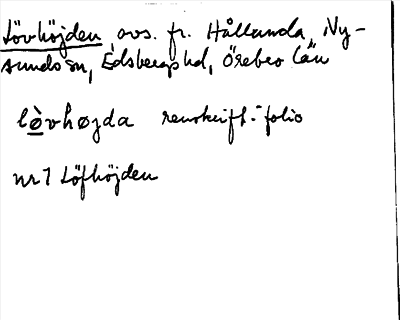 Lövhöjden avs. fr. Hållanda, Ny-
sunds sn, Edsbergs hd, Örebro län
lòvhøjda renskrift-folio
nr 7 Löfhöjden